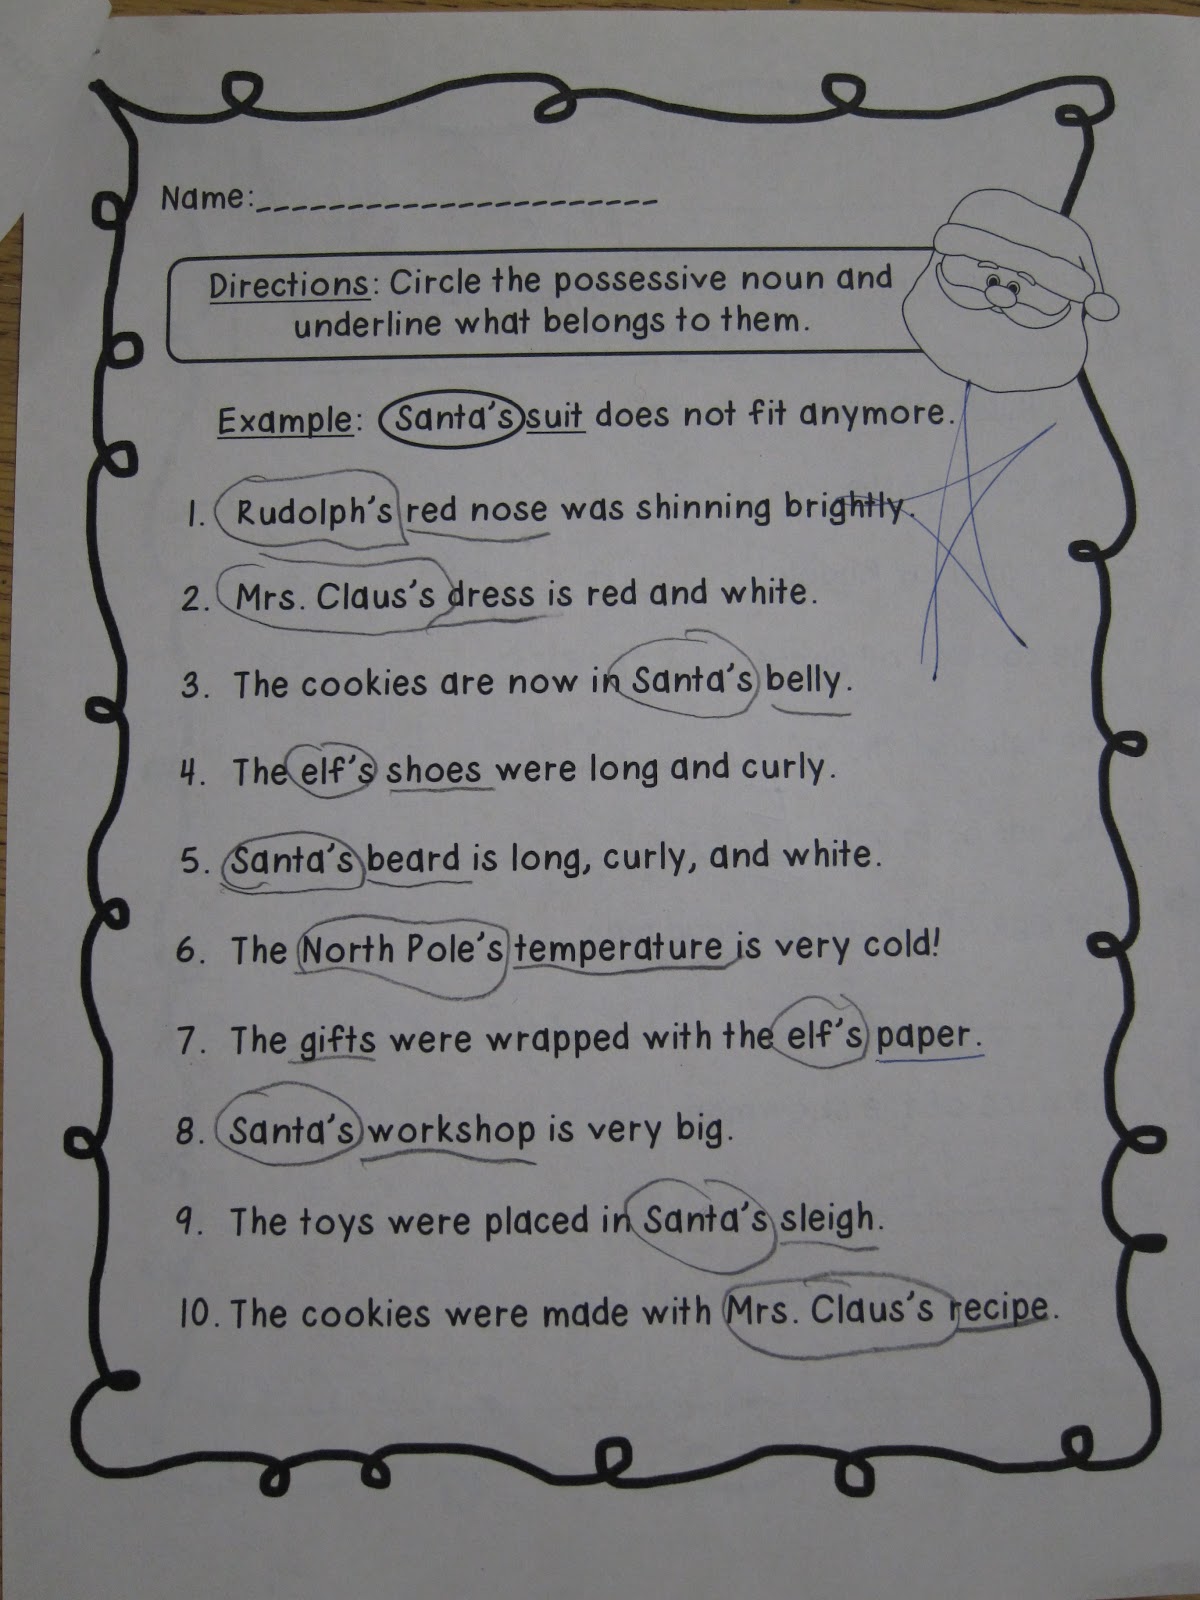 Name:_ _ _ _ _ _ _ _ _ _ _ _ _ _ _ _ _ _ _ _ _ _
Directions: Circle the possessive noun and
underline what belongs to them.
Example: Santa's suit does not fit anymore.
1. Rudolph's red nose was shinning brightly.
2. Mrs. Claus's dress is red and white.
3. The cookies are now in Santa's belly.
4. The elf's shoes were long and curly.
5. Santa's beard is long, curly, and white.
6. The North Pole's temperature is very cold!
7. The gifts were wrapped with the elf's paper.
8. Santa's workshop is very big.
9. The toys were placed in Santa's sleigh.
10. The cookies were made with Mrs. Claus's recipe.